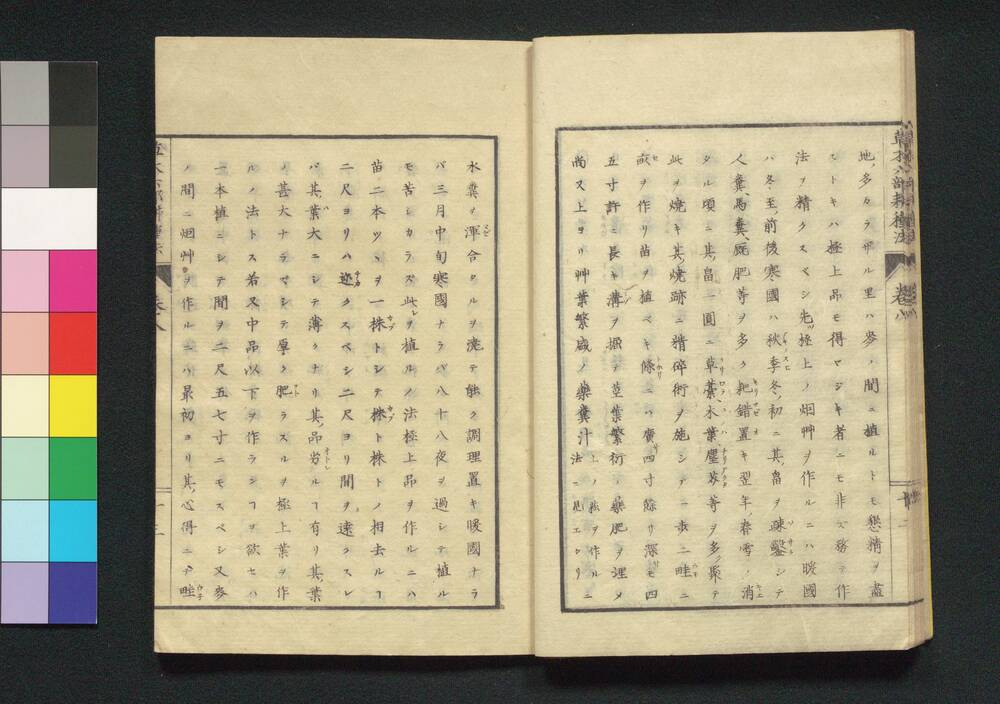 地、多カラザル里ハ麥ノ間ニ植ルトモ懇精ヲ盡
ストキハ極上品モ得マジキ者ニモ非ズ務テ作
法ヲ精クスベシ先ツ極上ノ烟艸ヲ作ルニハ暖國
ハ冬至前後寒國ハ秋季冬初ニ其畠ヲ疎鑿シテ
人糞馬糞厩肥等ヲ多ク把錯置キ翌年春雪ノ消
タル頃ニ其畠一圓ニ草藁木葉塵芥等ヲ多ク聚テ
此ヲ燒キ其燒跡ニ精碎術ヲ施シテ一歩ニ畦二
畝ヲ作リ苗ヲ植ベキ條ニハ廣サ四寸餘リ深サモ四
五寸許ニ長キ溝ヲ掘テ草葉繁衍ノ藥肥ヲ埋メ
尚又上ヨリ艸葉繁盛ノ藥糞汁
水糞ヲ渾合タルヲ澆テ能ク調理置キ暖國ナラ
バ三月中旬寒國ナラバ八十八夜ヲ過シテ植ル
モ苦シカラズ此レヲ植ルノ法極上品ヲ作ルニハ
苗二本ツヽヲ一株トシテ株ト株トノ相去ルヿ
二尺ヨリハ迩クスベシ二尺ヨリ間ヲ遠クスレ
バ其葉大ニシテ薄クナリ其品劣ルヿ有リ其葉
ノ甚大ナラマシテ厚ク肥ラスルヲ極上葉ヲ作
ルノ法トス若又中品以下ヲ作ランヿヲ欲セハ
一本植ニシテ間ヲ二尺五七寸ニモスベシ又麥
ノ間ニ烟艸ヲ作ルニハ最初ヨリ其心得ニテ畦
草木六部耕種法 卷八
十二
草木六部耕種法 卷八
十三